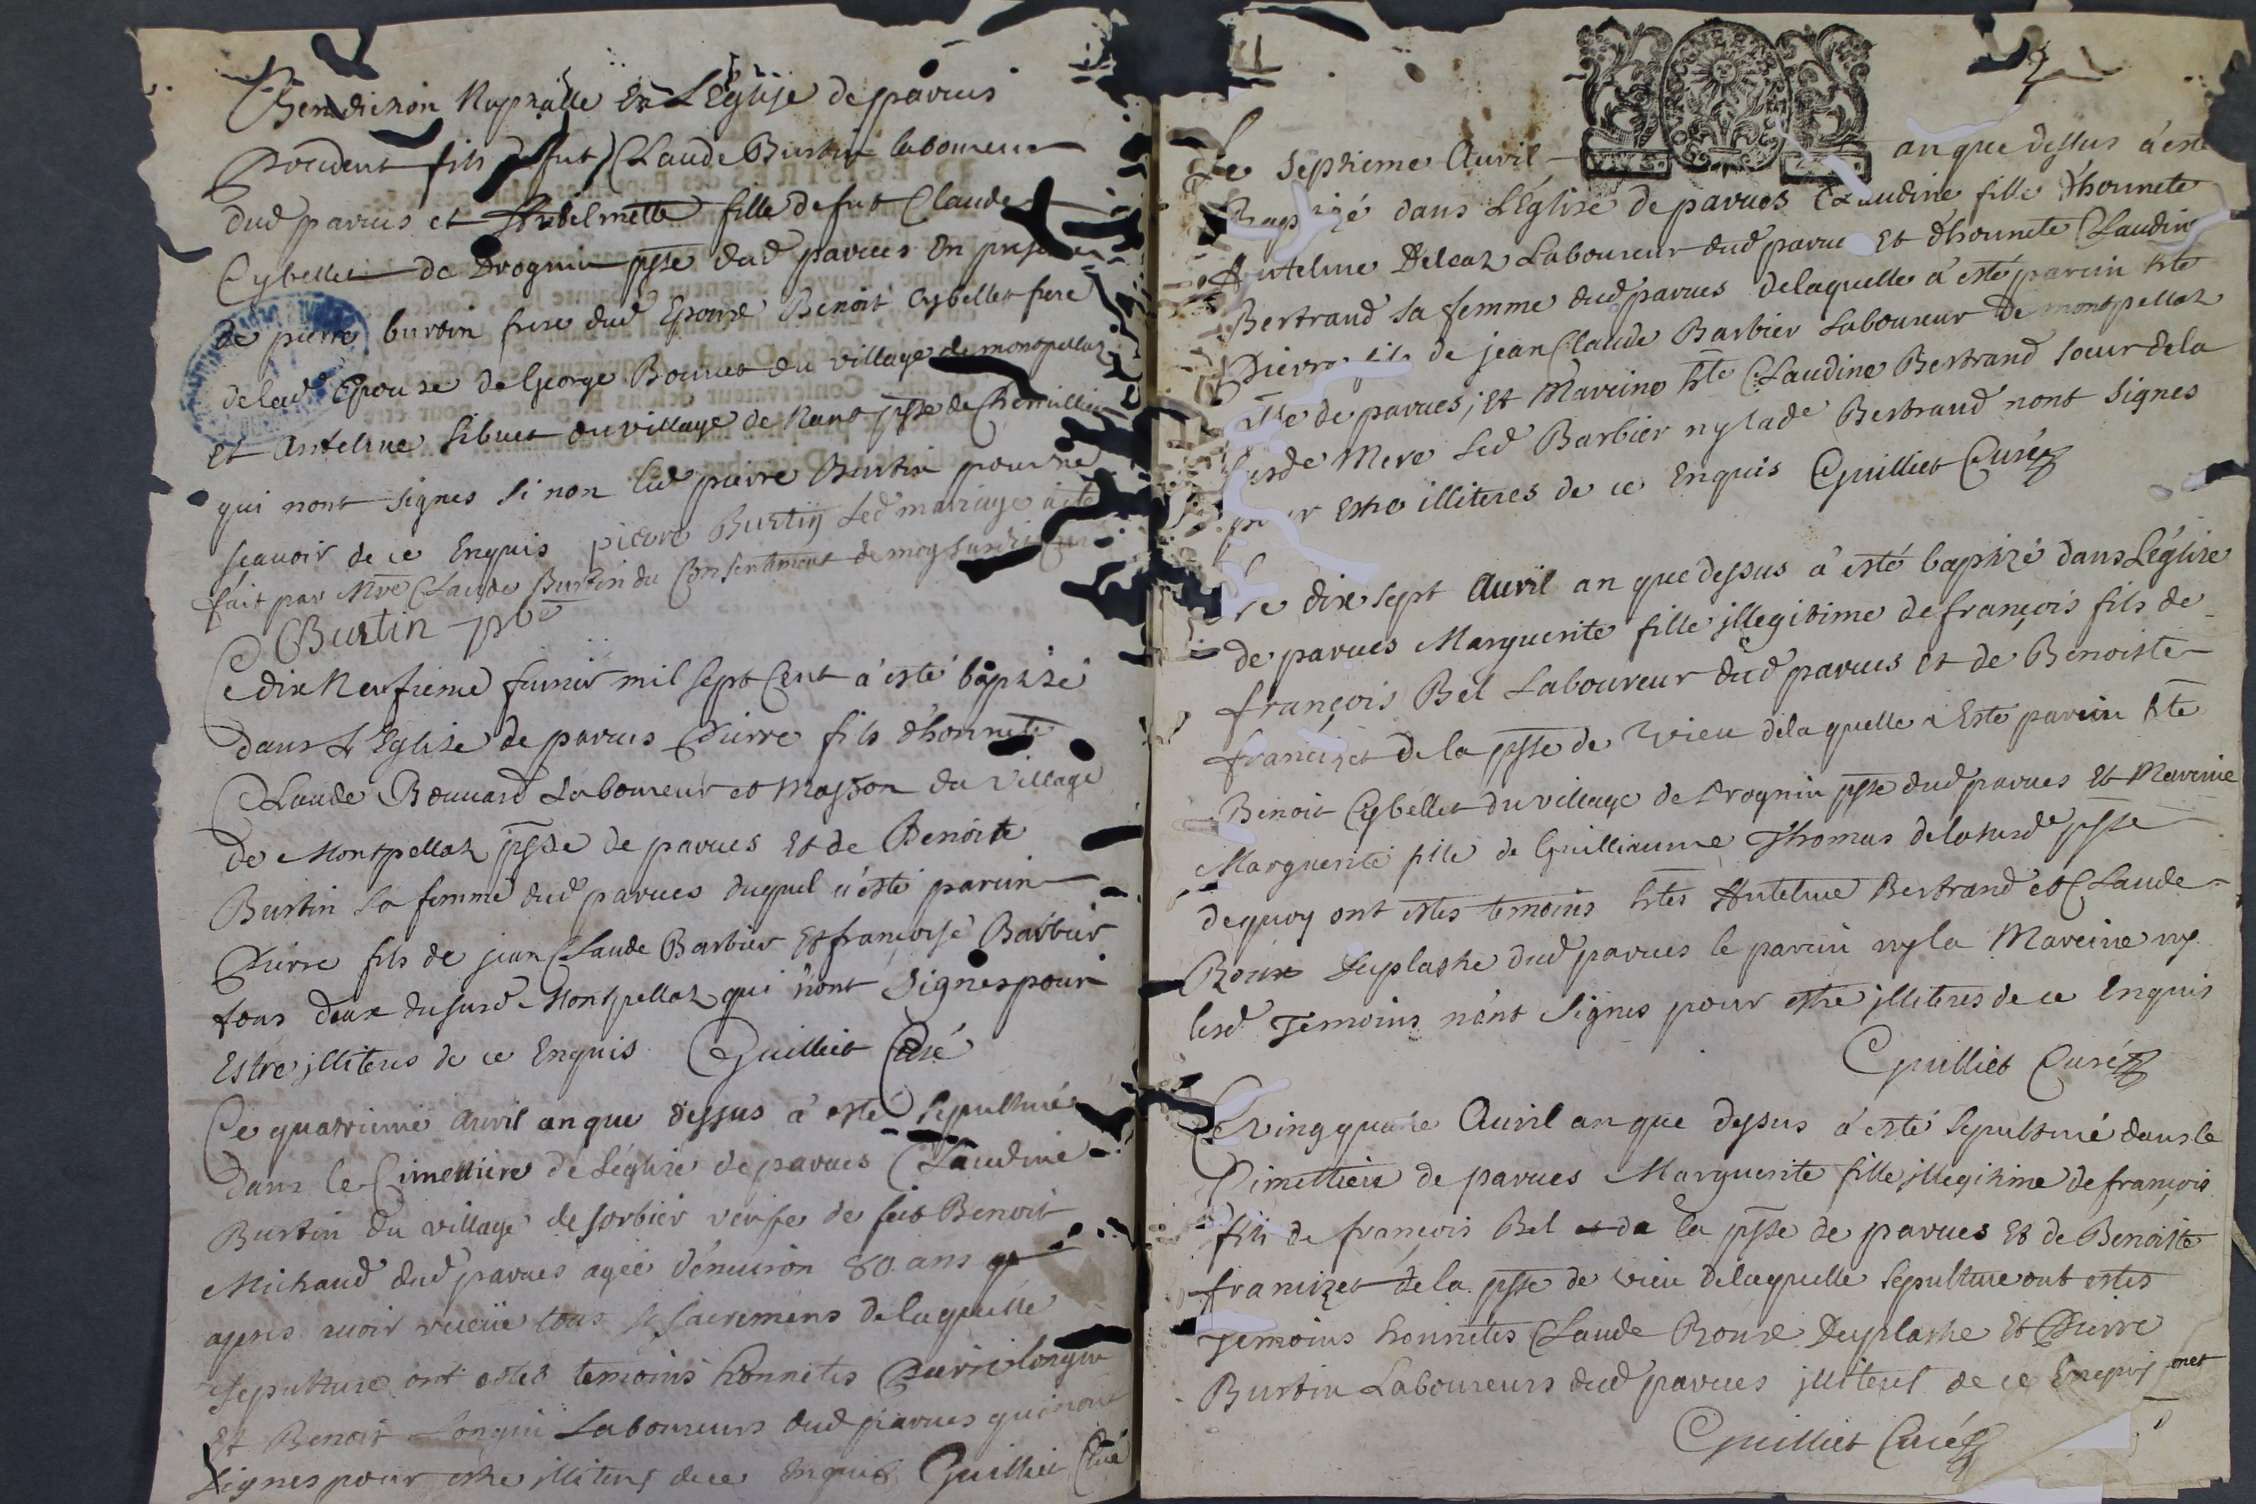 Benediction Nuptialle En L'Église de parves
Proudent fils de fut Claude Burtin laboureur
dud parves et Anthelmette fille de fut Claude
Cybellet de Drognin psse dud parves En presence
de pierre burtin frere dud Epoux Benoit Cybellet frere
de lad Epouse de George Bonnet du village de montpellaz
et Antelme Sibuet du village de Nant psse de Chemillieu
qui nont signes si non led pierre Burtin pour ne
sçavoir de ce Enquis pierre Burtin Led mariage a esté
fait par Mre Claude Burtin du Consentement de moy susdit Curé
C Burtin pbre
Ce dix Neufieme fevrier mil sept Cent a esté baptizé
dans L'Eglize de parves Pierre fils d'honnete
Claude Bouvard Laboureur et Masson du Village
de Montpellaz psse de parves Et de Benoite
Burtin sa femme dud parves duquel a esté parein
Pierre fils de jean Claude Barbier Et françoise Barbier
tous deux dususd Montpellaz qui nont Signes pour
Estre illiteres de ce Enquis Guilliet Curé
Ce quatrieme Avril an que dessus a esté sepulturée
dans le Cimettiere de L'églize de parves Claudine
Burtin du village de sorbier veufve de feit Benoit
Michaud dud parves agée d'environ 80 ans
apres avoir receue tous ses sacremens de laquelle
sepulture ont estes temoins honnetes Pierre longin
Et Benoit Longin Laboureurs dud parves qui nont
signes pour estre illiteres de ce Enquis Guilliet Curé
Le Septieme Avril an que dessus a esté
Baptizé dans L'Églize de parves Claudine fille d'honnete
Antelme Delcaz Laboureur dud parves Et d'honnete Claudine
Bertrand sa femme dud parves de laquelle a esté parein hte
Pierre fils de jean Claude Barbier Laboureur de montpellaz
psse de parves; et Mareine hte Claudine Bertrand soeur de la
susde Mere Led Barbier ny lade Bertrand nont Signes
pour Estre illiteres de ce Enquis Guilliet Curé
Le dix sept Auvril an que dessus a esté baptizé dans L'églize
de parves Marguerite fille jllegitime de françois fils de
françois Bel Laboureur dud parves et de Benoitte
francizet de la psse de Vieu de laquelle a Este parein hte
Benoit Cybellet du village de Drognin psse dud parves Et Mareine
Marguerite fille de Guilliaume Thomas de la susde psse
de quoy ont estes temoins htes Antelme Bertrand et Claude
Roux Duplastre dud parves le parein ny la Mareine ny
lesd Temoins nont Signes pour estre jlliteres de ce Enquis
Guilliet Curé
Ce vingquatre Avril an que dessus a esté Sepulturé dans le
Cimettiere de parves Marguerite fille jllegitime de françois
fils de françois Bel de la psse de parves Et de Benoitte
francizet de la psse de vieu de laquelle sepulture ont estes
Temoins honnetes Claude Roux Duplastre Et Pierre
Burtin Laboureurs dud parves jlliteres de ce Enquis
Guilliet Curé